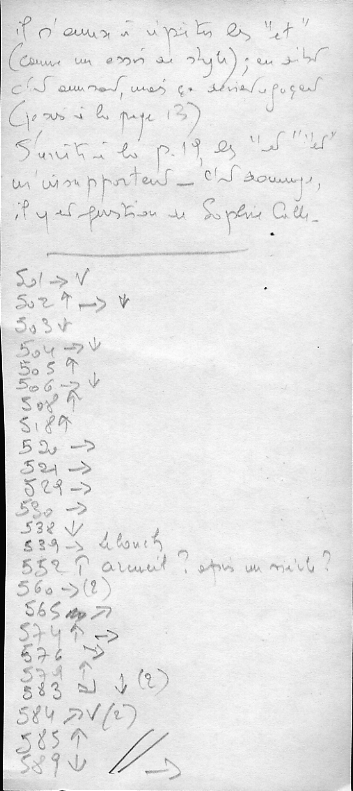 il s'amuse à répéter les "et"
(comme un essai de style); en effet
c'est amusant, mais ça devient agaçant
(je suis à la page 13)
J'arrête à la p. 19, les "et" "et"
m'insupportent _ c'est dommage,
il y est question de Sophie Calle_
501 → ↓
502 ↑ → ↓
503 ↓
504 → ↓
505 ↑
506 → ↓
508 ↑
518 ↑
520 →
521 →
529 →
530 →
538 ↓
539 →
552 ↑ accueil? après un siècle?
560 → (2)
565 ↗
574 ↑ →
576 →
579 ↑
583 ↓ (2)
584 ↗ ↓ (2)
585 ↑
589 ↓ // →